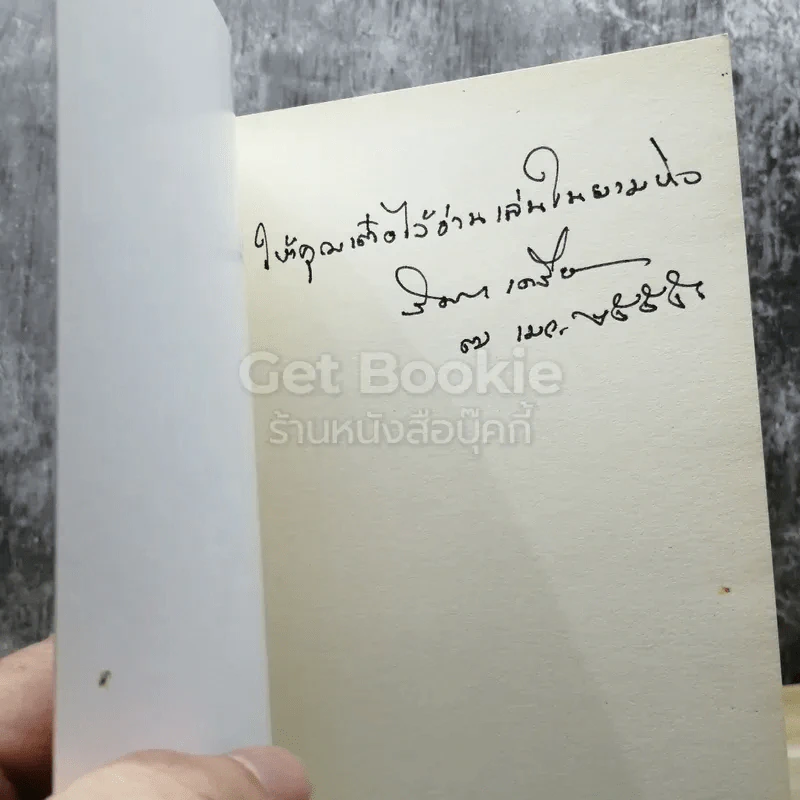 ให้คุณเตือไว้อ่านเล่นในยามห่อ
๗ เมย. ๒๕๕๕
Get Bookie
ร้านหนังสือบุ๊คกี้